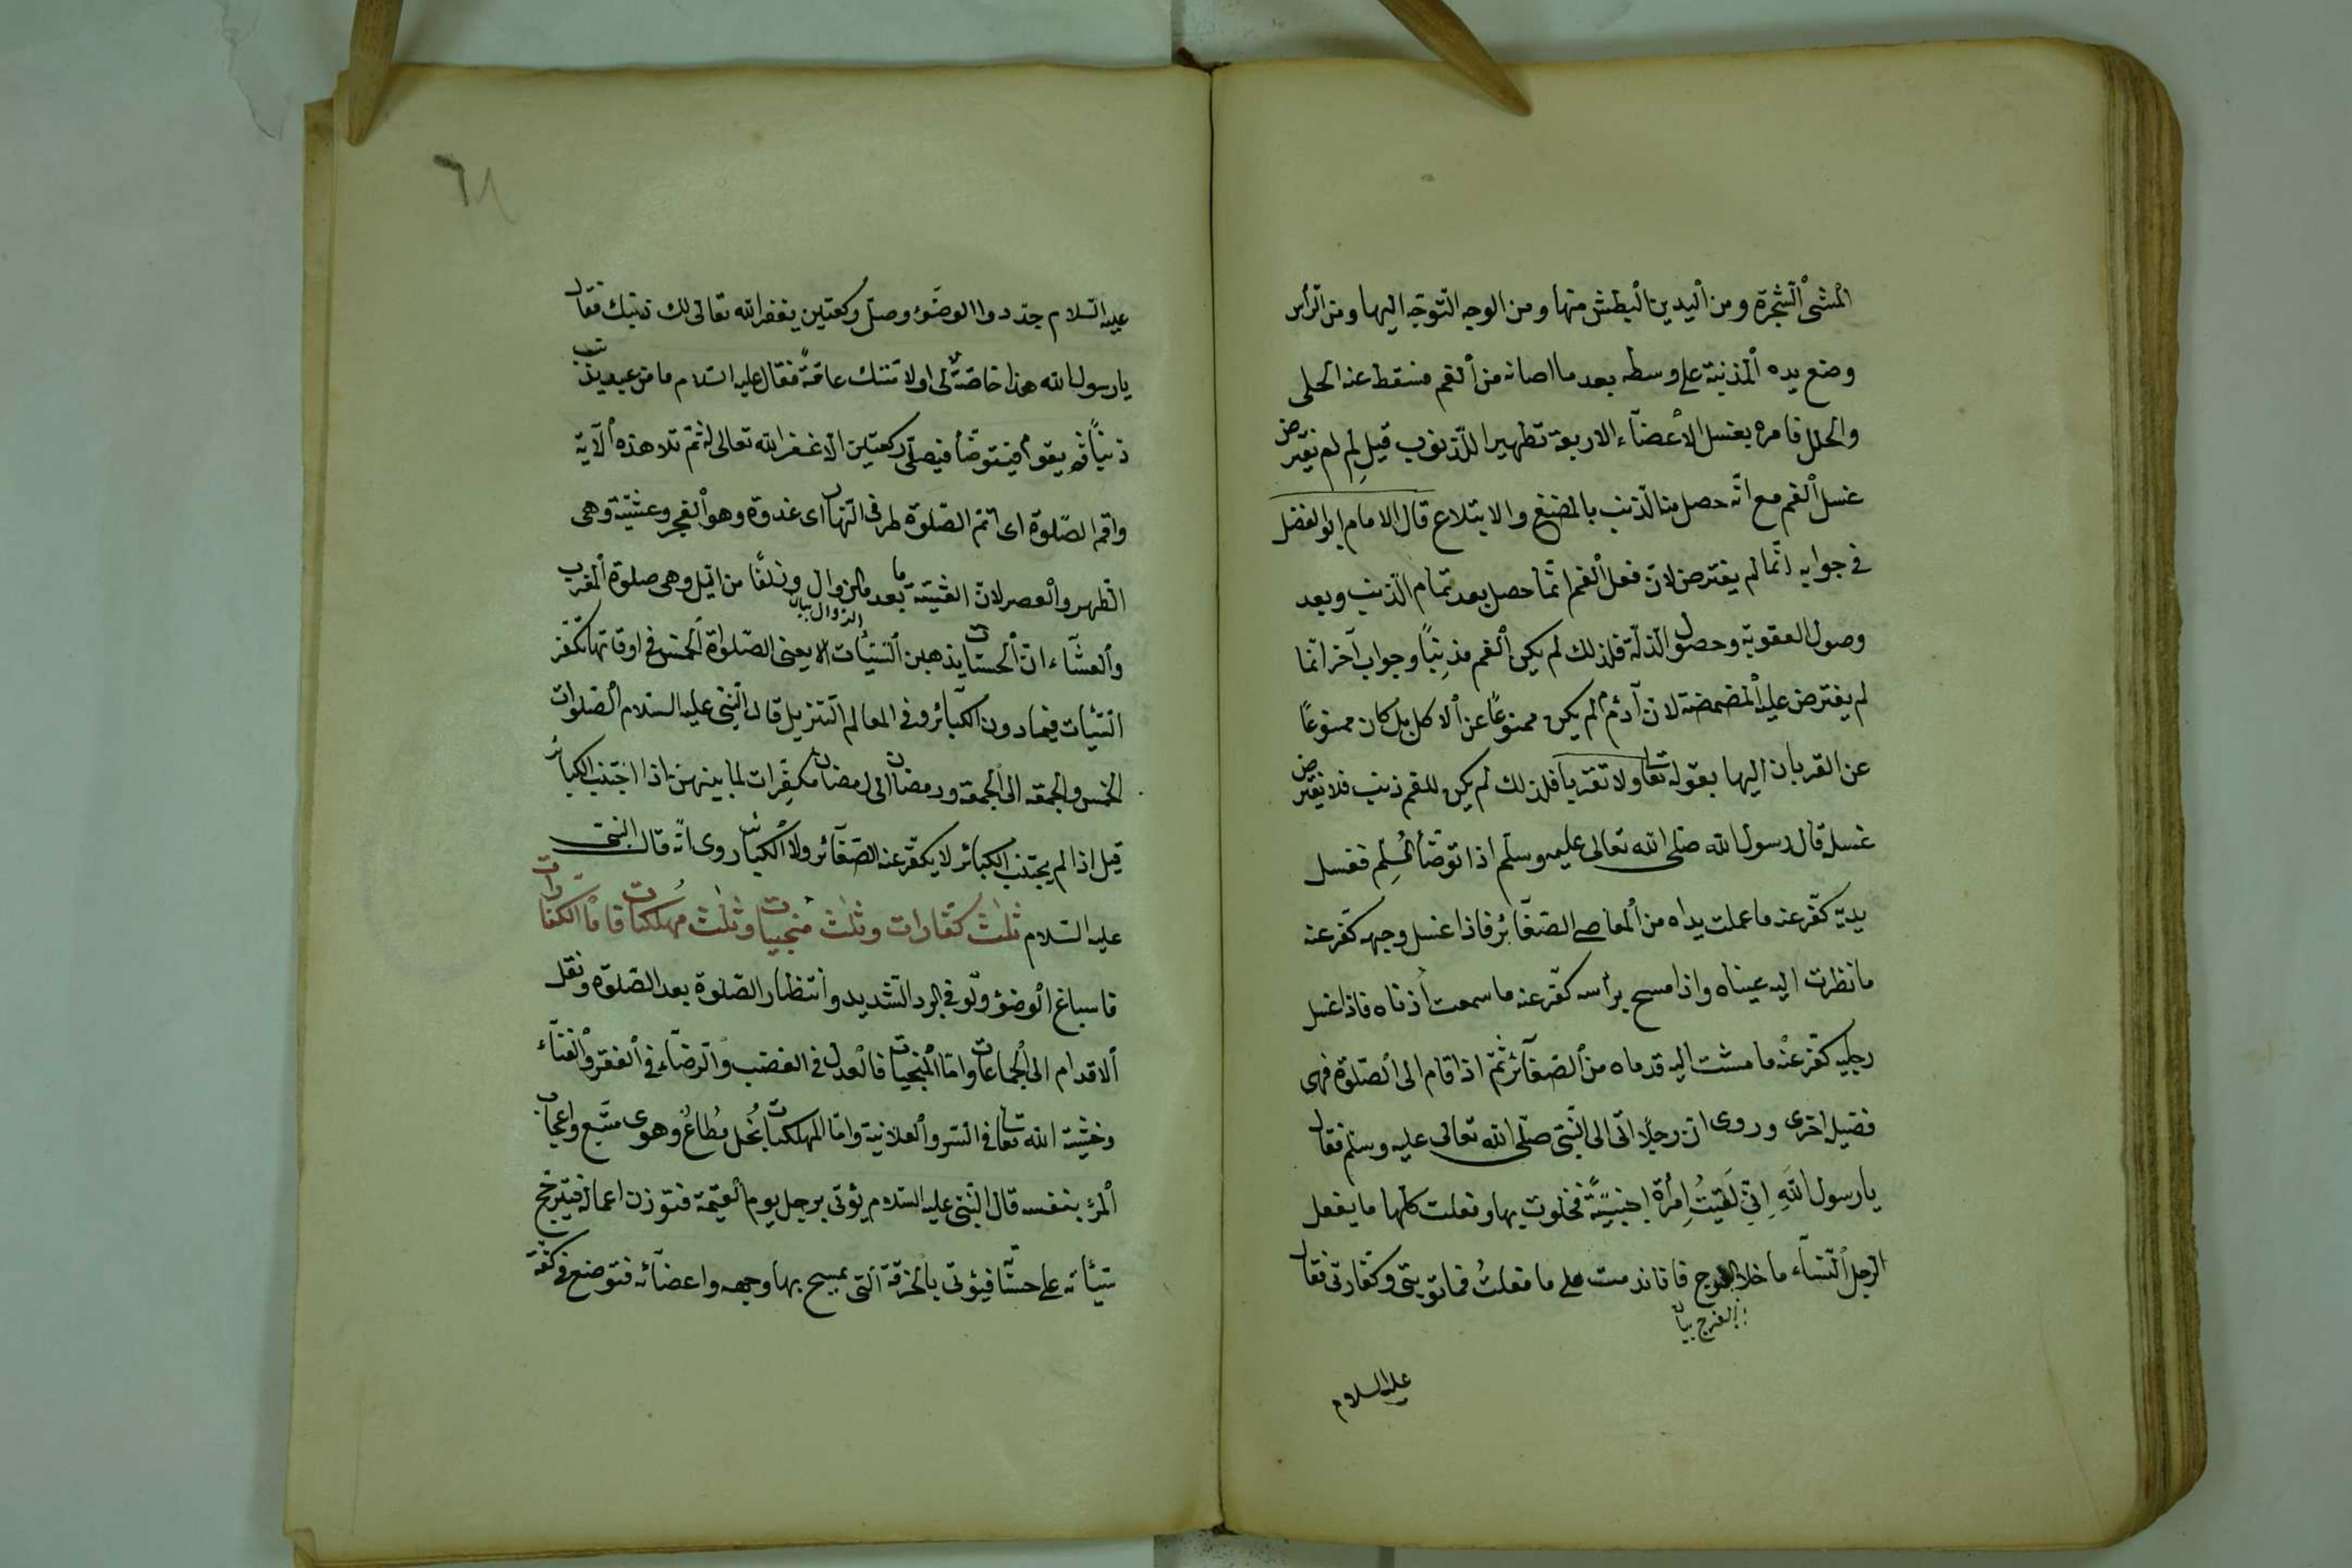 المشى الشجرة ومن اليدين البطش منها ومن الوجه التوجّه اليها ومن الرأس
وضع يده المذنبة على وسطه بعد ما اصابه من الغم فسقط عنه الحلى
والحلل فامره بغسل الاعضآء الاربعة تطهيرا للذنوب قيل لِم لم يفترض
غسل الفم مع انّه حصل منه الذنب بالمضغ والابتلاع قال الامام ابو الفضل
فى جوابه انّما لم يفترض لانّ فعل الفم انّما حصل بعد تمام الذنب وبعد
وصول العقوبة وحصول الذلّة فلذلك لم يكن الفم مذنِباً وجواب آخر انّما
لم يفترض عليه المضمضة لانّ آدم م لم يكن ممنوعًا عن الاكل بل كان ممنوعًا
عن القربان اليها بقوله تعا ولا تقربا فلذلك لم يكن للفم ذنب فلا يفترض
غسله قال رسول الله صلى الله تعالى عليه وسلّم اذا توضّأ المُسلِم فغسل
يديه كفّر عنه ما عملت يداه من المعاصى الصغآئر فاذا غسل وجهه كفّر عنه
ما نظرت اليه عيناه واذا مسح برأسه كفّر عنه ما سمعت أذناه فاذا غسل
رجليه كفّر عنه ما مشت اليه قدماه من الصغآئر ثمّ اذا قام الى الصّلوة فهى
فضيلة اخرى وروى انّ رجلًا اتى الى النّبى صلّى الله تعالى عليه وسلّم فقال
يا رسول اللّهِ اِنّى لَقيتُ اِمرأة اجنبيّةً فخلوت بها وفعلت كلّها ما يفعل
الرجل النّسآء ما خلا الفرج فانا ندمت على ما فعلتُ فما توبتى وكفّارتى فقال
الفرج بيان
عليه السلام
٦٨
عليه السّلام جدّدوا الوضوء وصلّ ركعتين يغفر الله تعالى لك ذنبك فقال
يا رسول الله هذا خاصّة لى او لامّتك عامّةً فقال عليه السّلام ما من عبد يذنب
ذنباً ثم يقوم فيتوضّأ فيصلّى ركعتين الّا غفر الله تعالى له ثمّ تلا هذه الآية
واقم الصّلوة اى اتمّ الصّلوة طرفى النّهار اى غدوة وهو الفجر وعشيّة وهى
الظهر والعصر لانّ العشيّة ما بعد الزوال وزلفًا من الّيل وهى صلوة المغرب
الزوال بيان
والعشآء انّ الحسنات يذهبن السّيّآت الآية يعنى الصّلوة الخمس فى اوقاتها تكفّر
السّيّآت فيما دون الكبآئر وفى المعالم التنزيل قال النّبى عليه السّلام الصّلوات
الخمس والجمعة الى الجمعة ورمضان الى رمضان مكفِّرات لما بينهنّ اذا اجتنب الكبائر
قيل اذا لم يجتنب الكبائر لا يكفّر عنه الصّغآئر ولا الكبائر روى انّه قال النبى
عليه السّلام ثلث كفّارات وثلث منجيات وثلث مُهلكات فامّا الكفّارات
فاسباغ الوضوء ولو فى البرد الشديد وانتظار الصّلوة بعد الصّلوة ونقل
الاقدام الى الجماعات وامّا المنجيات فالعدل فى الغضب والرضآء فى الفقر والغنآء
وخشية الله تعا فى السّر والعلانية وامّا المهلكات بُخل مُطاعٌ وهوى متّبع واعجاب
المرء بنفسه قال النّبى عليه السّلام يؤتى برجل يوم القيمة فتوزن اعماله فيترجّح
سيّئاته على حسناته فيؤتى بالخرقة الّتى يمسح بها وجهه واعضآئه فتوضع فى كفّة